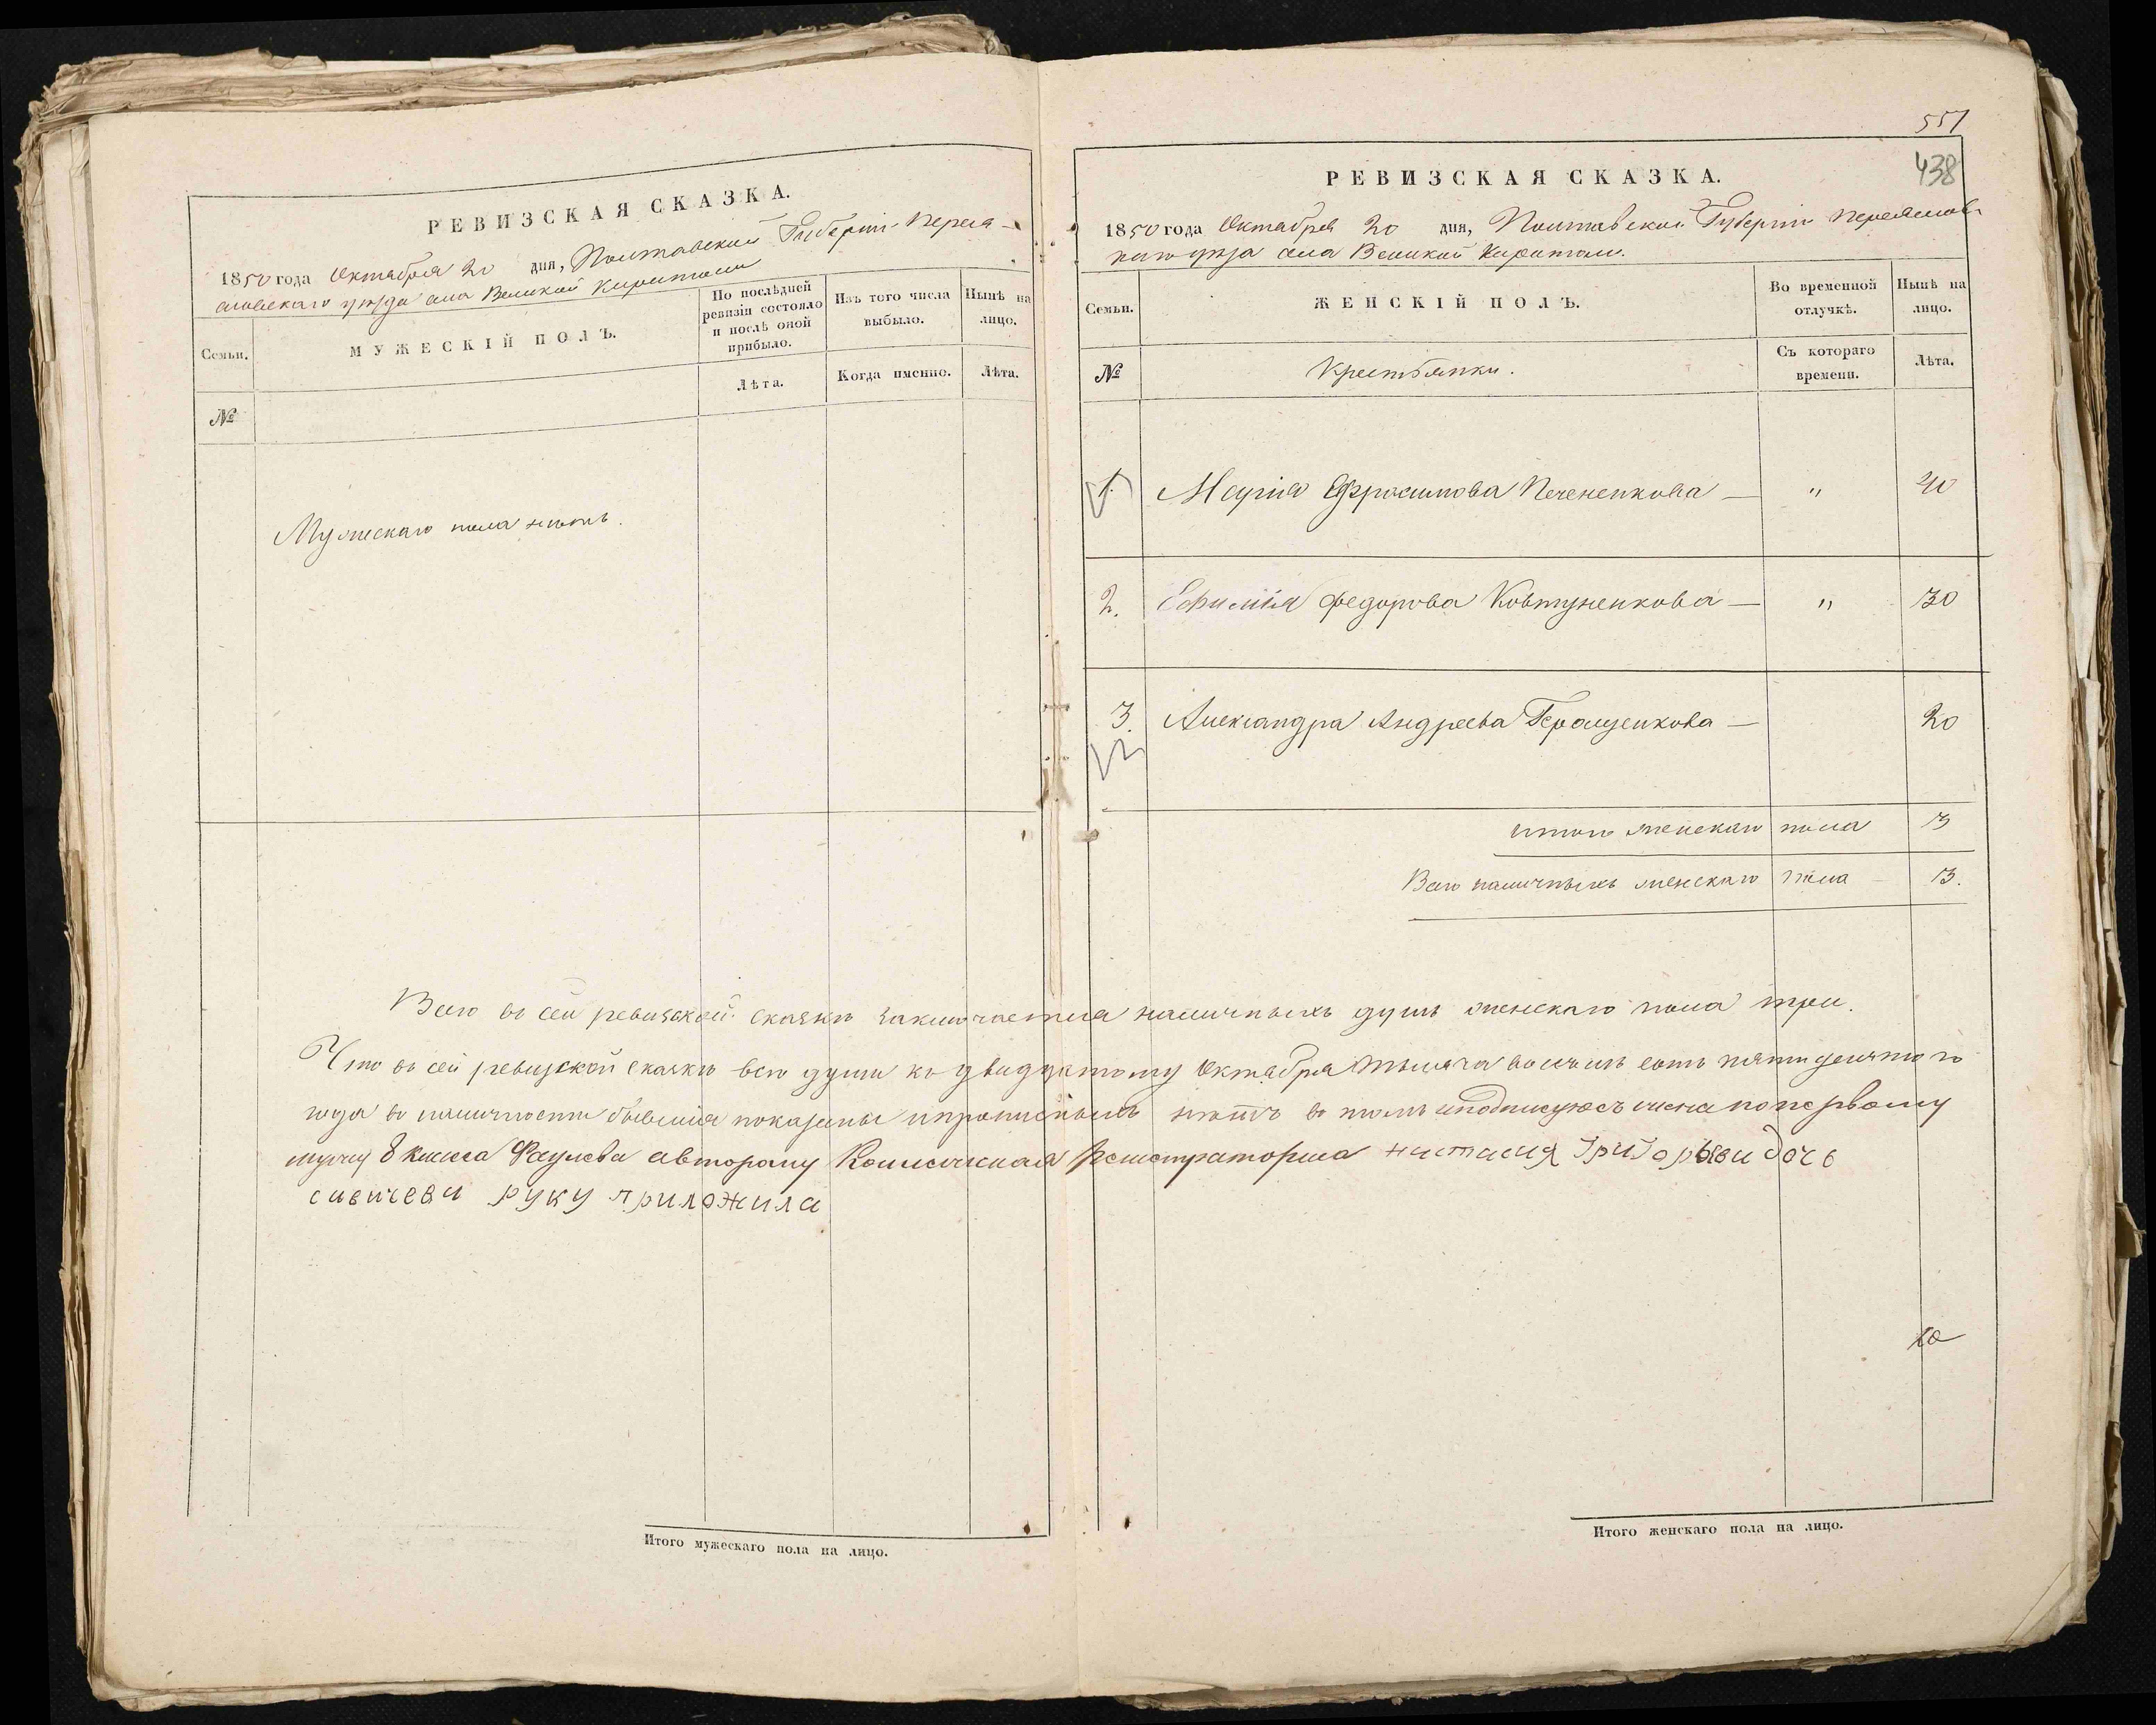 РЕВИЗСКАЯ СКАЗКА.
1850 года Октября 20 дня, Полтавской Губерніи Перея-
славскаго уезда села Великой Каратоли
Семьи.
МУЖЕСКІЙ ПОЛЪ.
По послѣдней ревизіи состояло и послѣ оной прибыло.
Изъ того числа выбыло.
Нынѣ на лицо.
№
Лѣта.
Когда именно.
Лѣта.
Мужескаго пола нетъ.
551
438
РЕВИЗСКАЯ СКАЗКА.
1850 года Октября 20 дня, Полтавской Губерніи Переяслов-
скаго уезда села Великой Каратоли.
Семьи.
ЖЕНСКІЙ ПОЛЪ.
Во временной отлучкѣ.
Нынѣ на лицо.
№
Крестьянки.
Съ котораго времени.
Лѣта.
1. Марія Ефросимова Печененкова — " 40
2. Ефимія Федорова Ковтуненкова — " 30
3. Александра Андреева Геращенкова — 20
итого женскаго пола 3
Всего наличныхъ женскаго пола — 3.
Всего въ сей ревизской сказке заключается наличныхъ душъ женскаго пола три.
Что въ сей ревизской сказке все души къ двадцатому Октября тысяча восемь сотъ пятидесятого
года въ наличности бывшія показаны и прописныхъ нетъ въ томъ и подписуюсь по первому
пункту 8 класса авторому Колежская Регистраторша настасия Григорьева дочь
савичева руку приложила
Итого мужескаго пола на лицо.
Итого женскаго пола на лицо.